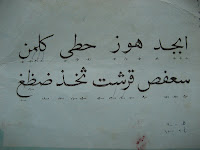 ابجد هوز حطي كلمن
سعفص قرشت ثخذ ضظغ